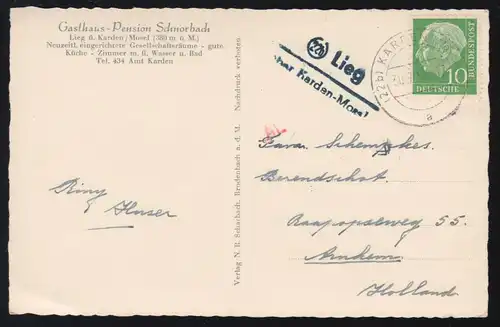 Gasthaus-Pension Schnorbach
Lieg ü. Karden/Mosel (380 m ü. M.)
Neuzeitl. eingerichtete Gesellschaftsräume - gute
Küche - Zimmer m. fl. Wasser u. Bad
Tel. 434 Amt Karden
Verlag N. B. Scharbach, Brodenbach a. d. M. Nachdruck verboten
Lieg
über Karden-Mosel
(22b) KARDEN
a
10
DEUTSCHE
BUNDESPOST
Fam. Schempkes
Berendschot.
Raapopseweg 55.
Arnhem
Holland